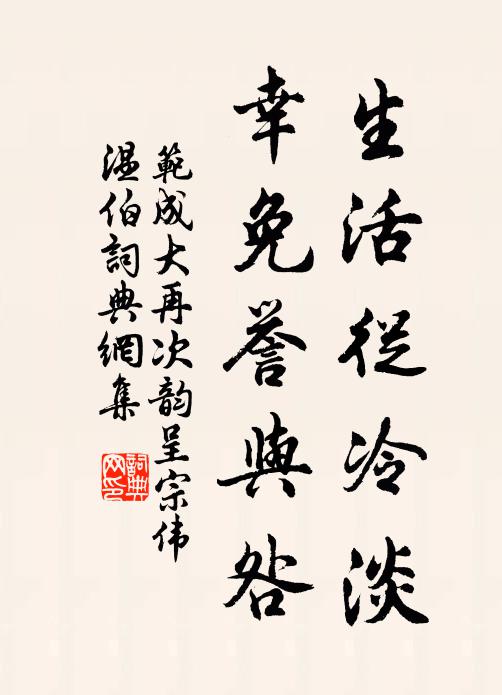 生活從冷淡
幸免譽與咎
範成大再次韵呈宗伟
温伯詞典網集
詞典网印